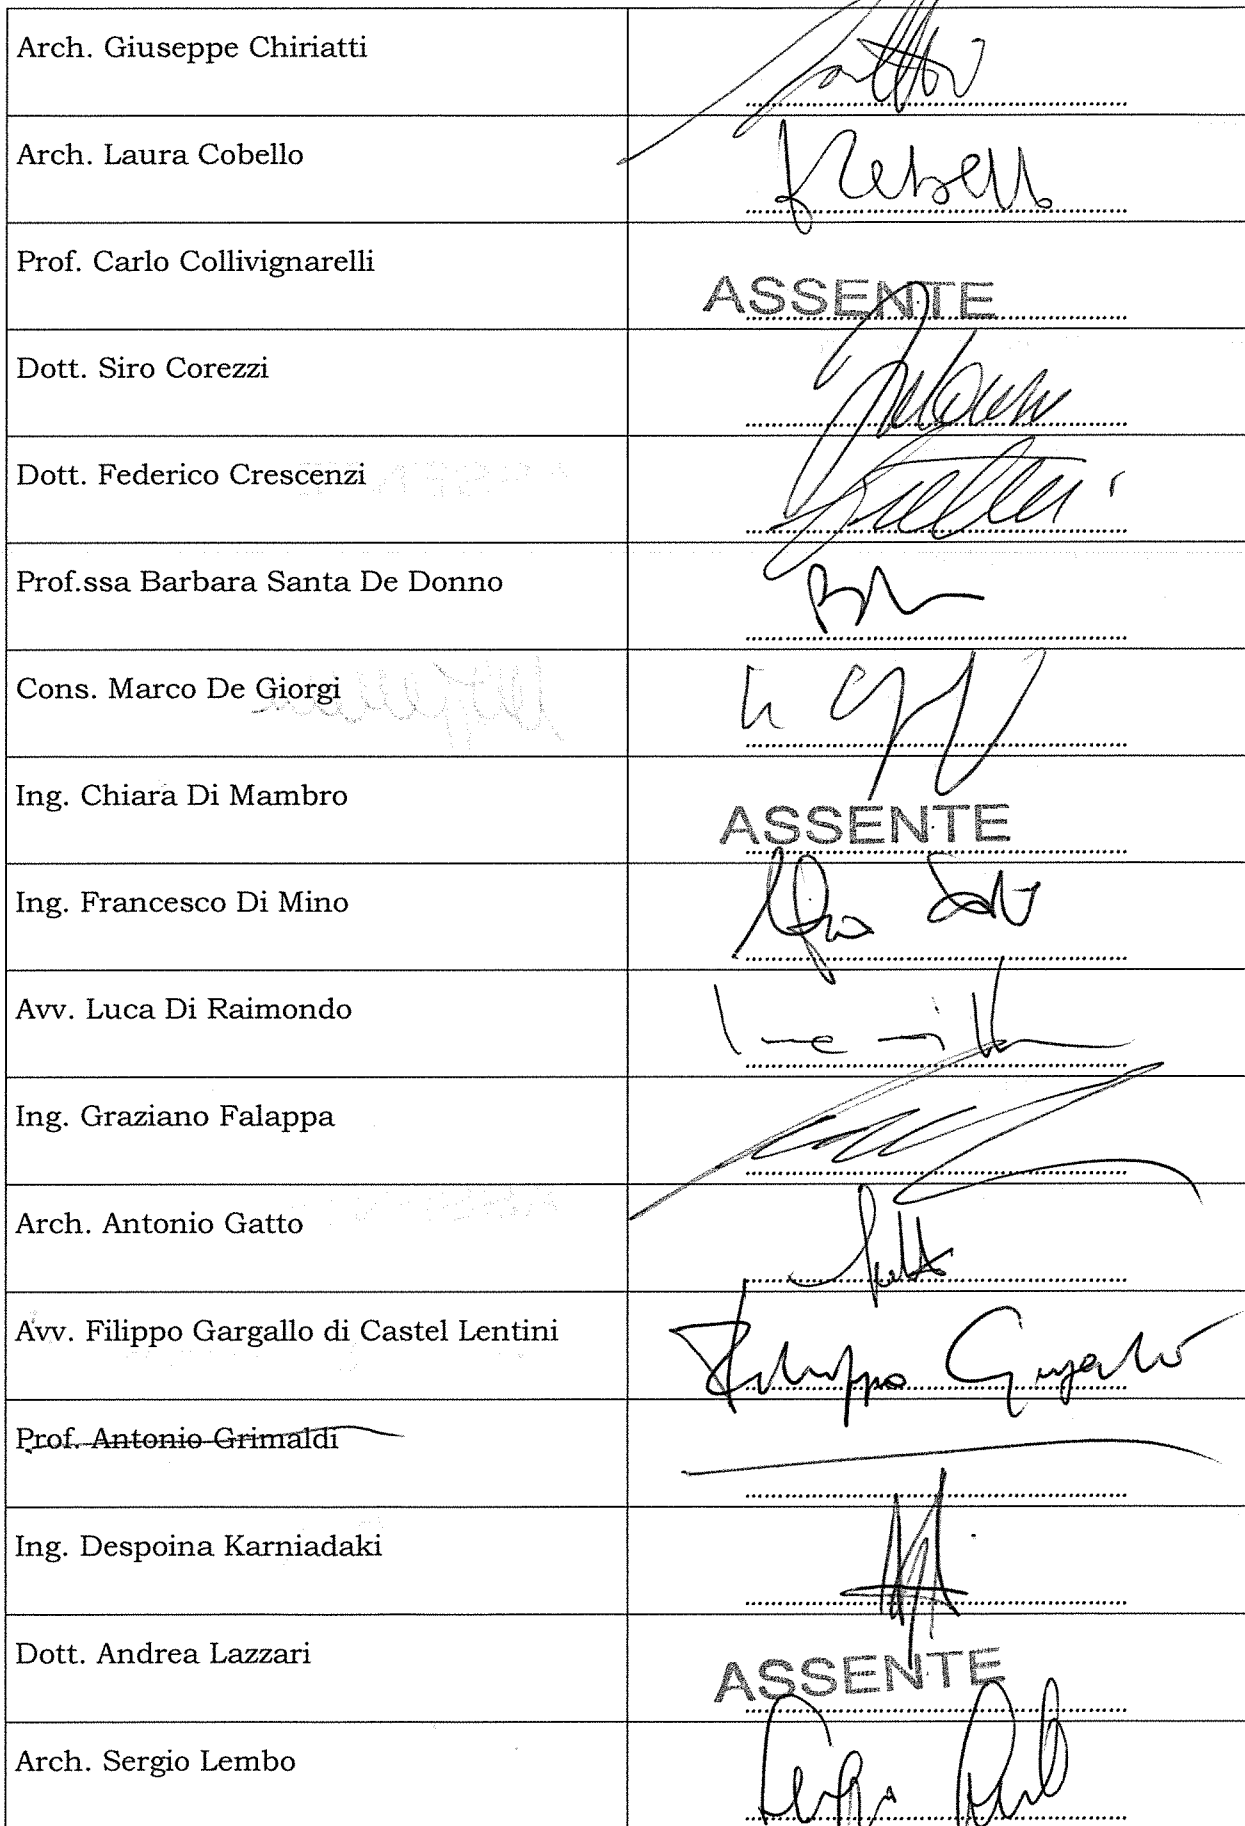 Arch. Giuseppe Chiriatti
Arch. Laura Cobello
Prof. Carlo Collivignarelli
ASSENTE
Dott. Siro Corezzi
Dott. Federico Crescenzi
Prof.ssa Barbara Santa De Donno
Cons. Marco De Giorgi
Ing. Chiara Di Mambro
ASSENTE
Ing. Francesco Di Mino
Avv. Luca Di Raimondo
Ing. Graziano Falappa
Arch. Antonio Gatto
Avv. Filippo Gargallo di Castel Lentini
Filippo Gargallo
Prof. Antonio Grimaldi
Ing. Despoina Karniadaki
Dott. Andrea Lazzari
ASSENTE
Arch. Sergio Lembo